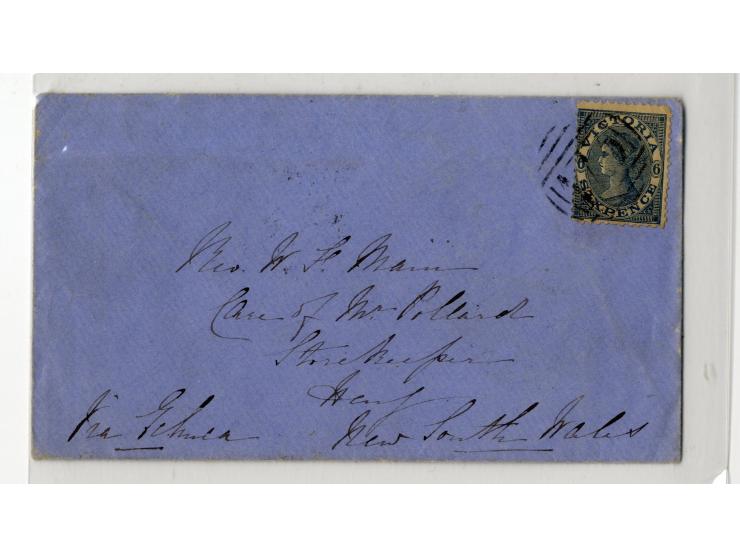 VICTORIA
6 6
SIXPENCE
W. F. Main
Care of Mr Pollard
Storekeeper
Hay
Via Echuca New South Wales